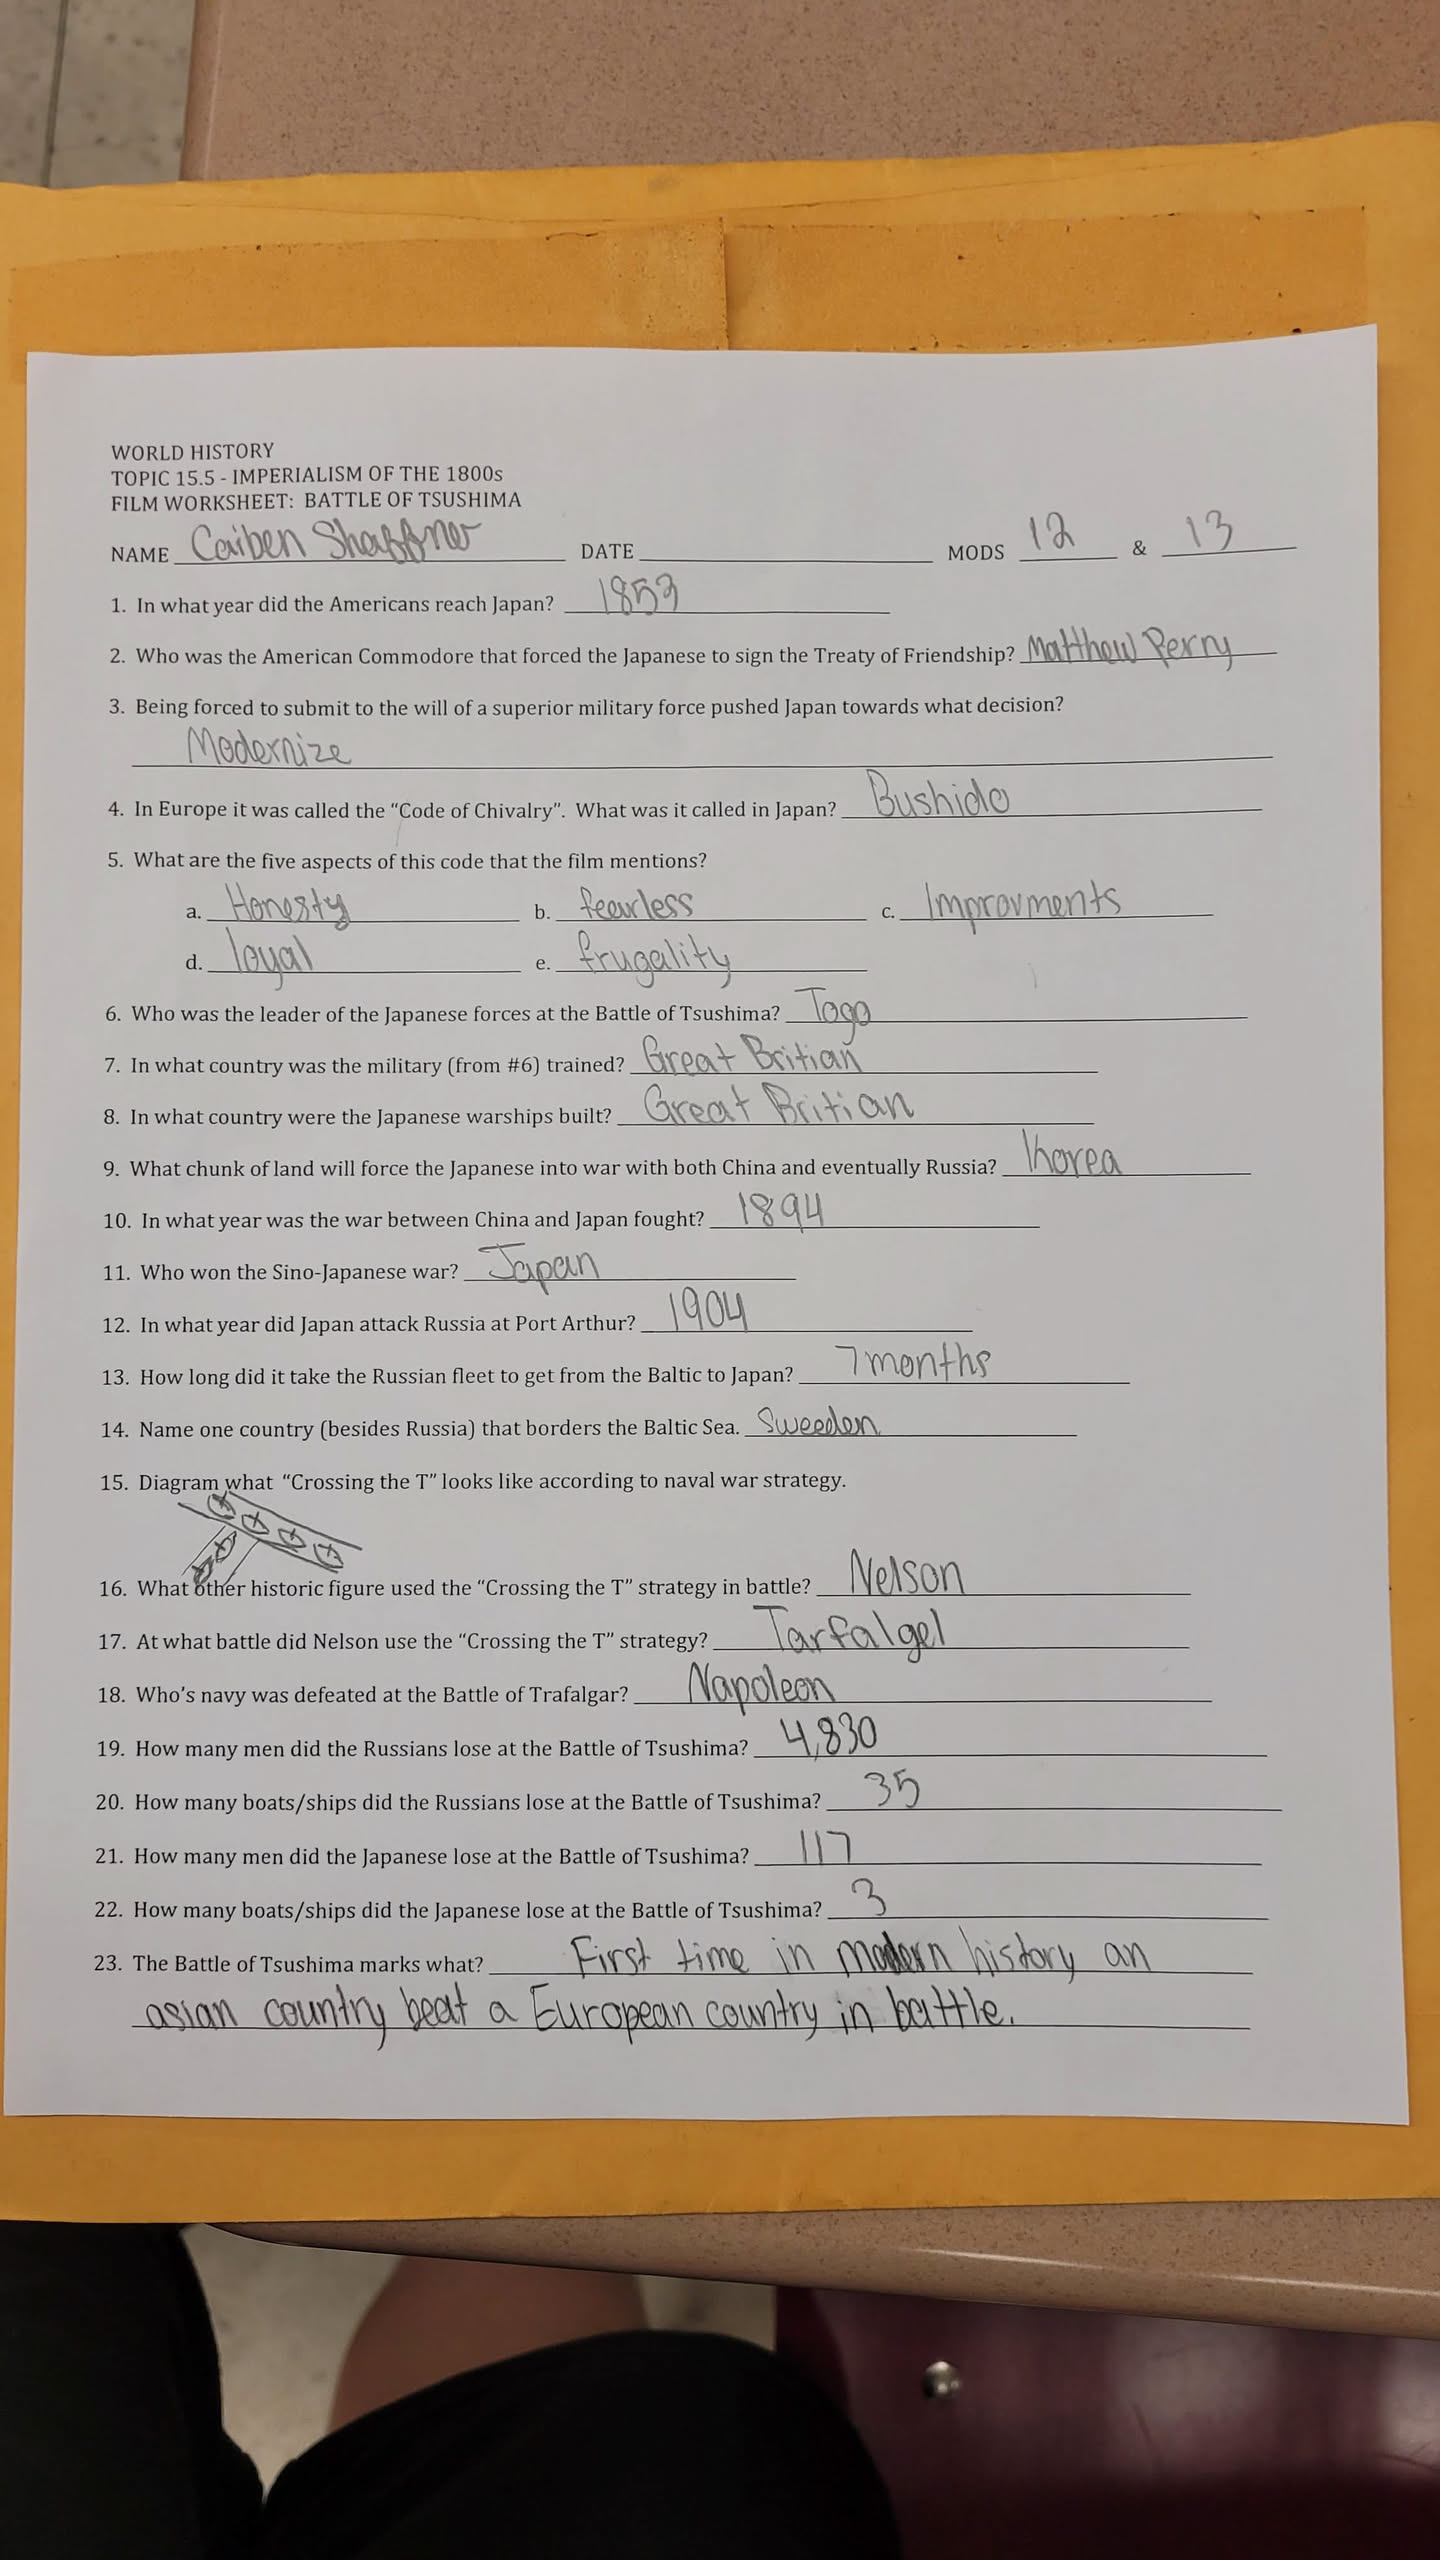 WORLD HISTORY
TOPIC 15.5 - IMPERIALISM OF THE 1800s
FILM WORKSHEET: BATTLE OF TSUSHIMA
NAME Caiben Shaffner DATE MODS 12 & 13
1. In what year did the Americans reach Japan? 1853
2. Who was the American Commodore that forced the Japanese to sign the Treaty of Friendship? Matthew Perry
3. Being forced to submit to the will of a superior military force pushed Japan towards what decision?
Modernize
4. In Europe it was called the “Code of Chivalry”. What was it called in Japan? Bushido
5. What are the five aspects of this code that the film mentions?
a. Honesty b. fearless c. Improvments
d. loyal e. frugality
6. Who was the leader of the Japanese forces at the Battle of Tsushima? Togo
7. In what country was the military (from #6) trained? Great Britian
8. In what country were the Japanese warships built? Great Britian
9. What chunk of land will force the Japanese into war with both China and eventually Russia? Korea
10. In what year was the war between China and Japan fought? 1894
11. Who won the Sino-Japanese war? Japan
12. In what year did Japan attack Russia at Port Arthur? 1904
13. How long did it take the Russian fleet to get from the Baltic to Japan? 7 months
14. Name one country (besides Russia) that borders the Baltic Sea. Sweeden
15. Diagram what “Crossing the T” looks like according to naval war strategy.
16. What other historic figure used the “Crossing the T” strategy in battle? Nelson
17. At what battle did Nelson use the “Crossing the T” strategy? Tarfalgel
18. Who’s navy was defeated at the Battle of Trafalgar? Napoleon
19. How many men did the Russians lose at the Battle of Tsushima? 4,830
20. How many boats/ships did the Russians lose at the Battle of Tsushima? 35
21. How many men did the Japanese lose at the Battle of Tsushima? 117
22. How many boats/ships did the Japanese lose at the Battle of Tsushima? 3
23. The Battle of Tsushima marks what? First time in modern history an
asian country beat a European country in battle.